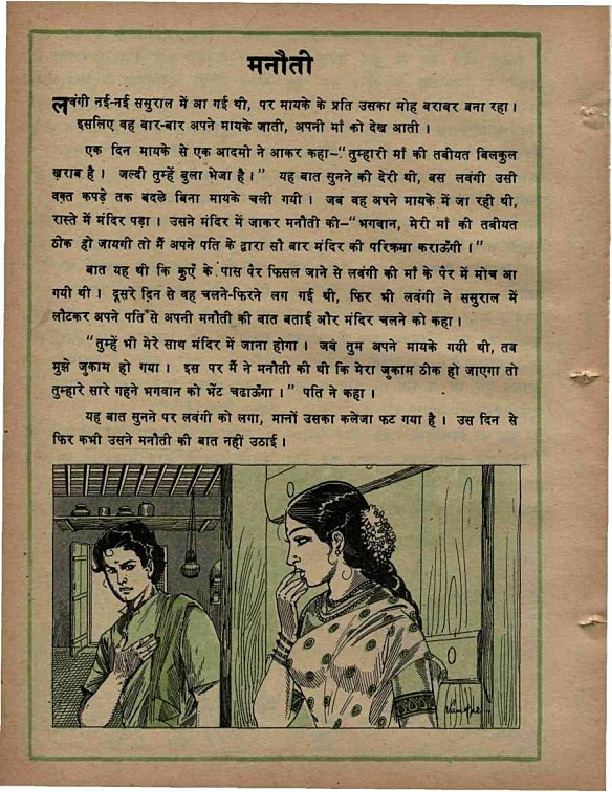 मनौती
लवंगी नई-नई ससुराल में आ गई थी, पर मायके के प्रति उसका मोह बराबर बना रहा।
इसलिए वह बार-बार अपने मायके जाती, अपनी माँ को देख आती।
एक दिन मायके से एक आदमी ने आकर कहा—"तुम्हारी माँ की तबीयत बिलकुल
ख़राब है। जल्दी तुम्हें बुला भेजा है।" यह बात सुनने की देरी थी, बस लवंगी उसी
वक़्त कपड़े तक बदले बिना मायके चली गयी। जब वह अपने मायके में जा रही थी,
रास्ते में मंदिर पड़ा। उसने मंदिर में जाकर मनौती की—"भगवान, मेरी माँ की तबीयत
ठीक हो जायगी तो मैं अपने पति के द्वारा सौ बार मंदिर की परिक्रमा कराऊँगी।"
बात यह थी कि कुएँ के पास पैर फिसल जाने से लवंगी की माँ के पैर में मोच आ
गयी थी। दूसरे दिन से वह चलने-फिरने लग गई थी, फिर भी लवंगी ने ससुराल में
लौटकर अपने पति से अपनी मनौती की बात बताई और मंदिर चलने को कहा।
"तुम्हें भी मेरे साथ मंदिर में जाना होगा। जब तुम अपने मायके गयी थी, तब
मुझे जुकाम हो गया। इस पर मैं ने मनौती की थी कि मेरा जुकाम ठीक हो जाएगा तो
तुम्हारे सारे गहने भगवान को भेंट चढाऊँगा।" पति ने कहा।
यह बात सुनने पर लवंगी को लगा, मानों उसका कलेजा फट गया है। उस दिन से
फिर कभी उसने मनौती की बात नहीं उठाई।